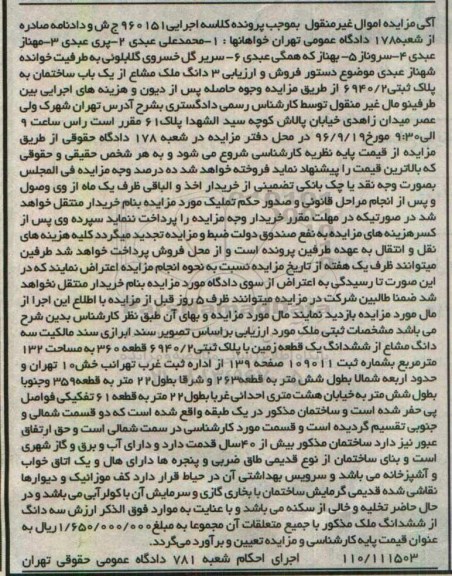 آگهی مزایده اموال غیرمنقول بموجب پرونده کلاسه اجرایی ۹۶۰۱۵۱ ج ش و دادنامه صادره
از شعبه ۱۷۸ دادگاه عمومی تهران خواهانها : ۱-محمدعلی عبدی ۲-پری عبدی ۳-مهناز
عبدی ۴-سروناز ۵-بهناز که همگی عبدی ۶-سریر گل خسروی گلابلونی به طرفیت خوانده
شهناز عبدی موضوع دستور فروش و ارزیابی ۳ دانگ ملک مشاع از یک باب ساختمان به
پلاک ثبتی ۶۹۴۰/۲ از طریق مزایده وجوه حاصله پس از دیون و هزینه های اجرایی بین
طرفین و مال غیر منقول توسط کارشناس رسمی دادگستری بشرح آدرس تهران شهرک ولی
عصر میدان زاهدی خیابان پالاش کوچه سید الشهدا پلاک ۶۱ مقرر است راس ساعت ۹
الی ۹:۳۰ مورخ ۹۶/۹/۱۹ در محل دفتر مزایده در شعبه ۱۷۸ دادگاه حقوقی از طریق
مزایده از قیمت پایه نظریه کارشناسی شروع می شود و به هر شخص حقیقی و حقوقی
که بالاترین قیمت را پیشنهاد نماید فروخته خواهد شد ده درصد وجه مزایده فی المجلس
بصورت وجه نقد یا چک بانکی تضمینی از خریدار اخذ و الباقی ظرف یک ماه از وی وصول
و پس از انجام مراحل قانونی و صدور حکم تملیک مورد مزایده بنام خریدار منتقل خواهد
شد در صورتیکه در مهلت مقرر خریدار وجه مزایده را پرداخت ننماید سپرده وی پس از
کسر هزینه های مزایده به نفع صندوق دولت ضبط و مزایده تجدید میگردد کلیه هزینه های
نقل و انتقال به عهده طرفین پرونده است و از محل فروش پرداخت خواهد شد طرفین
میتوانند ظرف یک هفته از تاریخ مزایده نسبت به نحوه انجام مزایده اعتراض نمایند که در
این صورت تا رسیدگی به اعتراض از سوی دادگاه مورد مزایده بنام خریدار منتقل نخواهد
شد ضمنا طالبین شرکت در مزایده میتوانند ظرف ۵ روز قبل از مزایده با اطلاع این اجرا از
مال مورد مزایده بازدید نمایند مال مورد مزایده و بهای آن طبق نظر کارشناس بدین شرح
می باشد مشخصات ثبتی ملک مورد ارزیابی براساس تصویر سند ابرازی سند مالکیت سه
دانگ مشاع از ششدانگ یک قطعه زمین با پلاک ثبتی ۶۹۴۰/۲ قطعه ۳۶۰ به مساحت ۱۳۲
مترمربع بشماره ثبت ۱۰۹۰۱۱ صفحه ۱۳۹ از اداره ثبت غرب تهران بخش ۱۰ تهران و
حدود اربعه شمالا بطول شش متر به قطعه ۲۶۳ و شرقا بطول ۲۲ متر به قطعه ۳۵۹ وجنوبا
بطول شش متر به خیابان هشت متری احداثی غربا بطول ۲۲ متر به قطعه ۶۱ تفکیکی فواصل
پی حفر شده است و ساختمان مذکور در یک طبقه واقع شده است که دو قسمت شمالی و
جنوبی تقسیم گردیده است و قسمت مورد کارشناسی در سمت شمالی است و حق ارتفاق
عبور نیز دارد ساختمان مذکور بیش از ۴۰ سال قدمت دارد و دارای آب و برق و گاز شهری
است و بنای ساختمان از نوع قدیمی طاق ضربی و پنجره ها دارای هال و یک اتاق خواب
و آشپزخانه می باشد و سرویس بهداشتی آن در حیاط قرار دارد کف موزائیک و دیوارها
نقاشی شده قدیمی گرمایش ساختمان با بخاری گازی و سرمایش آن با کولر آبی می باشد و در
حال حاضر تخلیه و خالی از سکنه می باشد و با عنایت به موارد فوق الذکر ارزش سه دانگ
از ششدانگ ملک مذکور با جمیع متعلقات آن مجموعا به مبلغ ۱/۶۵۰/۰۰۰/۰۰۰ ریال به
عنوان قیمت پایه کارشناسی و مزایده تعیین و برآورد میگردد.
۱۱۰/۱۱۱۵۰۳ اجرای احکام شعبه ۷۸۱ دادگاه عمومی حقوقی تهران